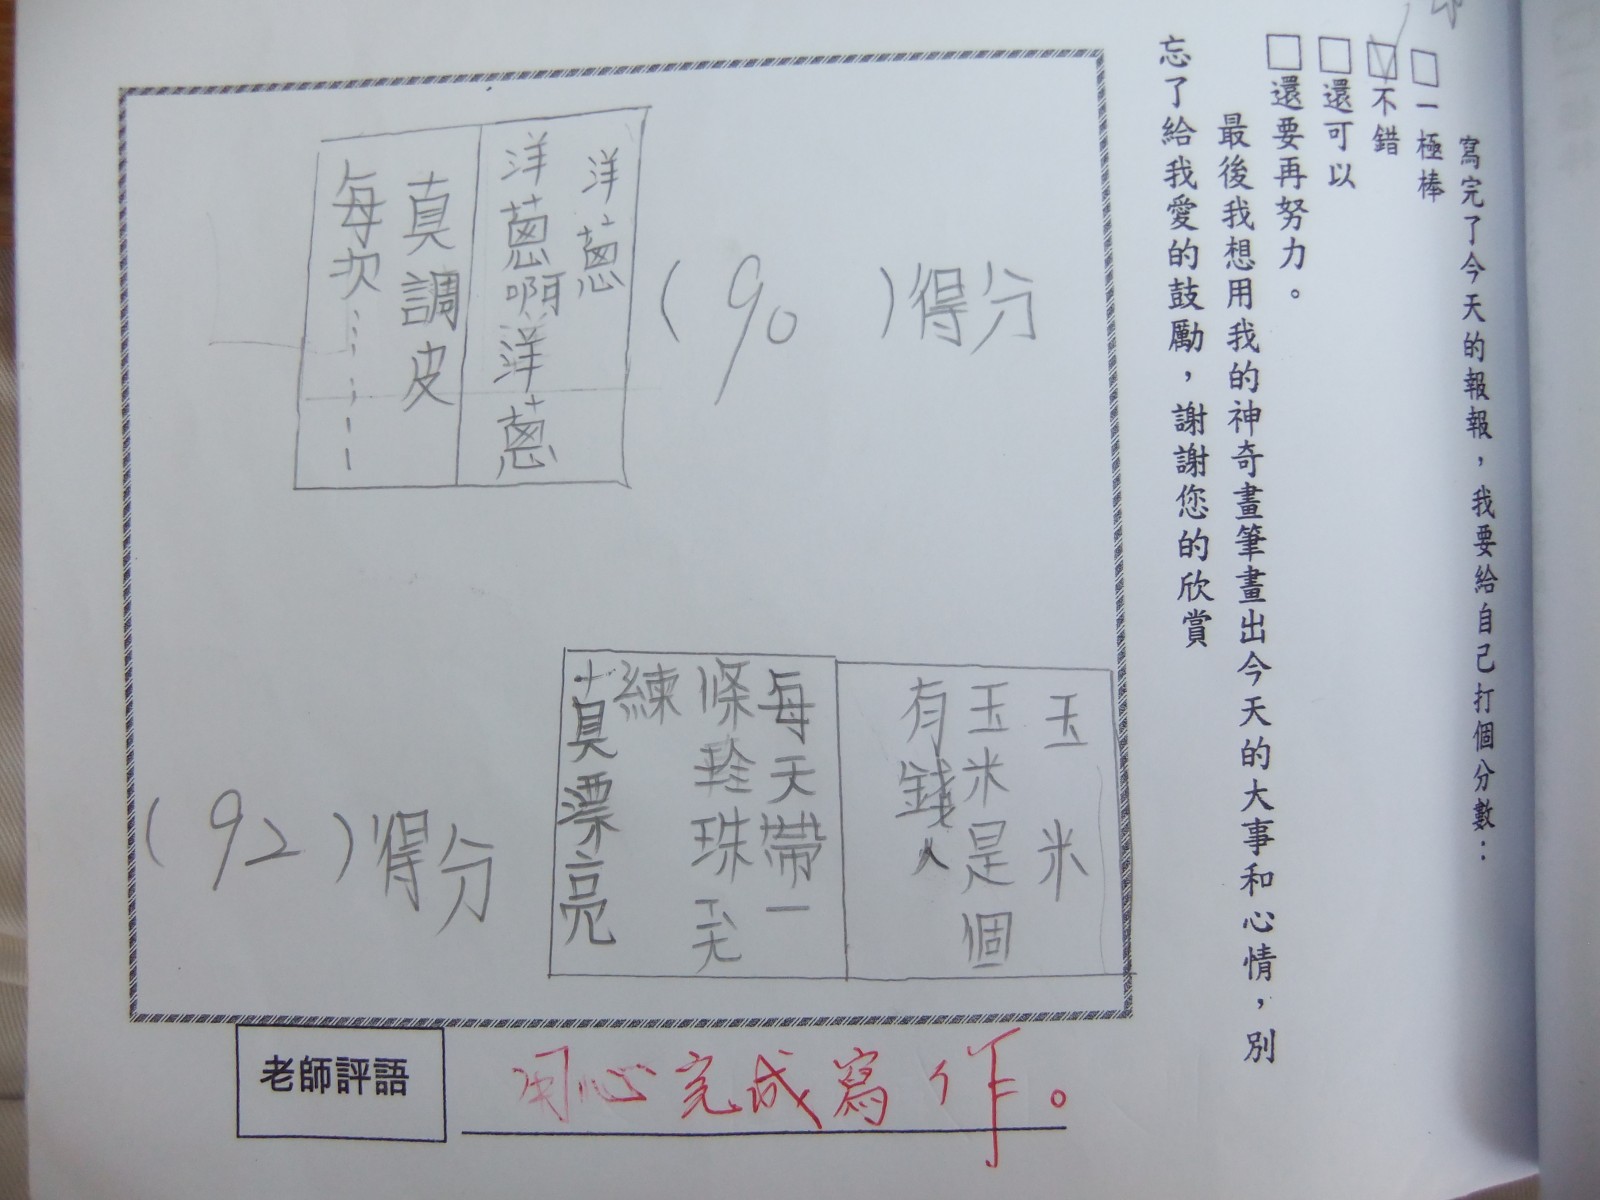 寫完了今天的報報，我要給自己打個分數：
□一極棒
□不錯
□還可以
□還要再努力。
最後我想用我的神奇畫筆畫出今天的大事和心情，別
忘了給我愛的鼓勵，謝謝您的欣賞
(90)得分
洋蔥
洋蔥啊洋蔥
真調皮
每次……
玉米
玉米是個
有錢人
每天帶一
條珍珠
練
真漂亮
(92)得分
老師評語
用心完成寫作。